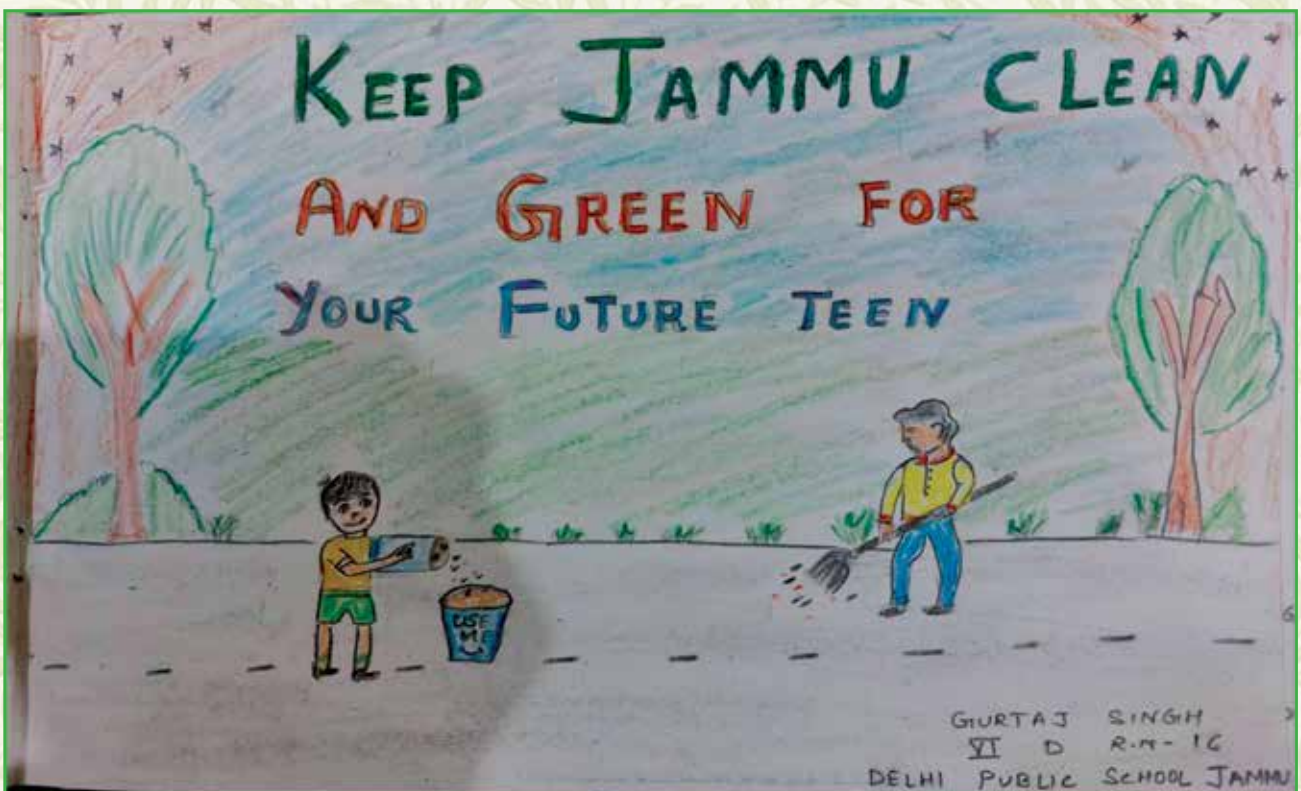 KEEP JAMMU CLEAN
AND GREEN FOR
YOUR FUTURE TEEN
USE
ME
GURTAJ SINGH
VI D R.N- 16
DELHI PUBLIC SCHOOL JAMMU